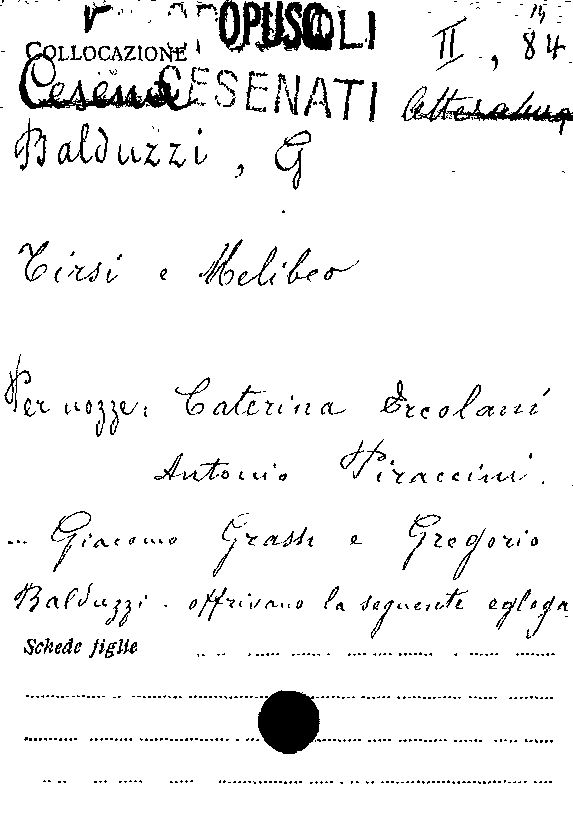 OPUSCOLI
II, 84
COLLOCAZIONE
Cesena
CESENATI
Letteratura
Balduzzi, G
Tirsi e Melibeo
Per nozze: Caterina Ercolani
Antonio Piraccini.
... Giacomo Grassi e Gregorio
Balduzzi. offrivano la seguente egloga
Schede figlie